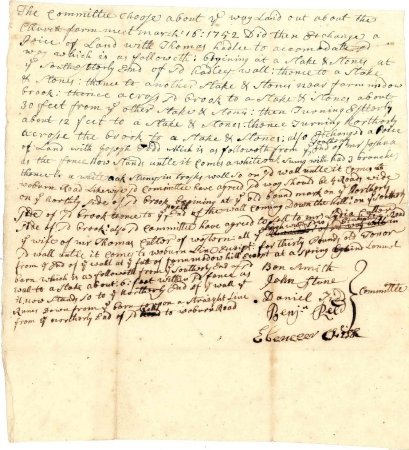 The Committee Choose about yᵉ way Laid out about the
Church farm meet march 16: 1752 Did then Exchange a
Peice of Land with Thomas hadlee to accomodate sd
way which is as followeth: begining at a Stake & Stones at
yᵉ Southerly End of sd hadley wall: thence to a Stake
& Stones: thence to another Stake & Stones near farm meadow
brook: thence a cross sd brook to a Stake & Stones about
30 feet from yᵉ other Stake & Stons: then Turning Easterly
about 12 feet to a Stake & Stones: thence Turning Northerly
across the brook to a Stake & Stones: also Exchanged a Peice
of Land with Joseph which is as followeth from yᵉ of Joshua
as the fence Now Stands untle it comes a white oak Stump with had 3 branches
thence to a white oak Stump in wall So on sd wall untle it comes to
woburn Road Likewise sd Committee have agreed sd way Should be 4 Rods wide
on yᵉ northly Side of sd brook begining at yᵉ old bound mark on yᵉ Northerly
Side of sd brook thence to yᵉ End of the wall coming down the hill: on yᵉ Southerly
Side of sd brook: also sd Committee have agreed to sell to mrs Lydia Cutler
yᵉ wife of mr Thomas Cutler of western: all yᵉ
sd wall untle it comes to woburn Line Except for thirty Pound old Tenor
from yᵉ End of yᵉ wall of farm meadow hill Except at a Spring behind Lonnust
barn which is as followeth from yᵉ Southerly End of sd
wall to a Stake about 6: feet within sd fence as
it now Stands so to yᵉ Northerly End of yᵉ wall yᵗ
Runes down from yᵉ barn upon a Straight Line
from yᵉ northerly End of sd to woburn Road
Ben Smith
John Stone
Daniel
Benjᵃ Reed
Ebenezer Fisk
Committee